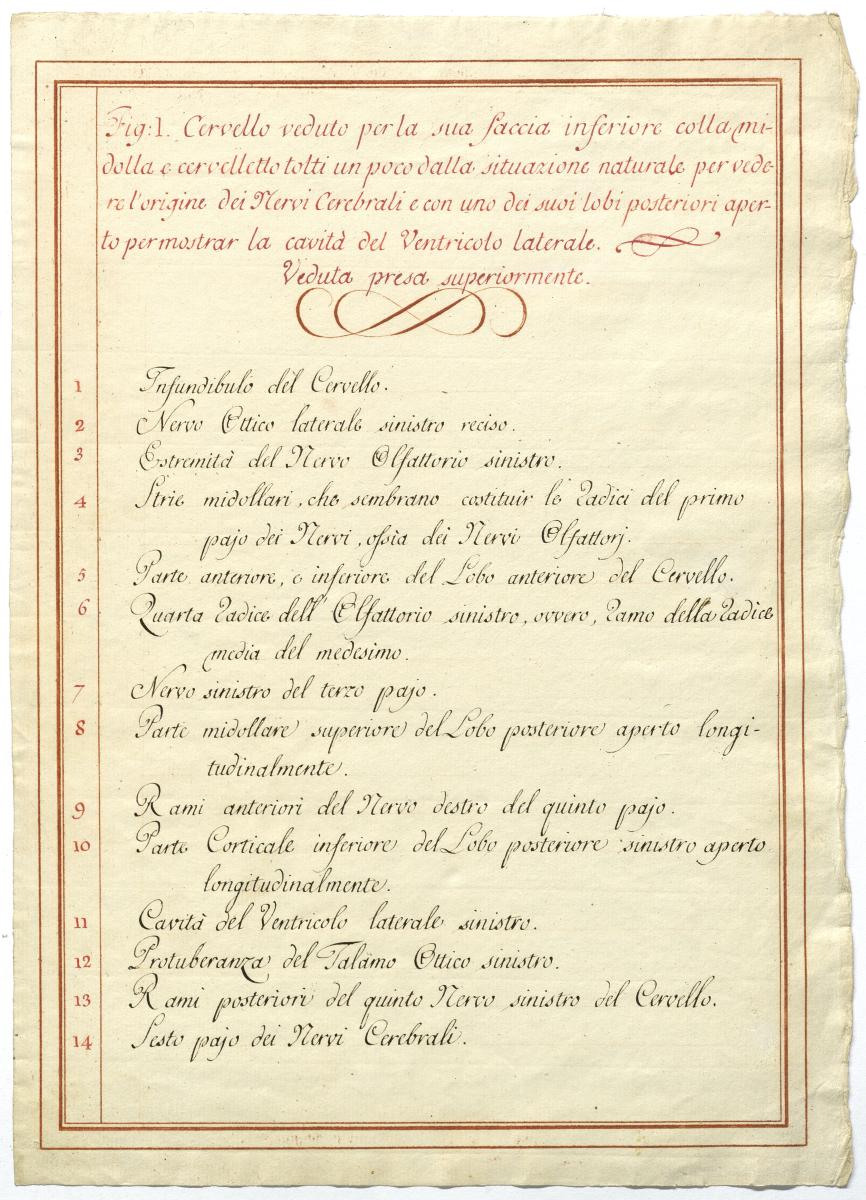 Fig: 1. Cervello veduto per la sua faccia inferiore colla mi-
dolla e cervelletto tolti un poco dalla situazione naturale per vede-
re l'origine dei Nervi Cerebrali e con uno dei suoi lobi posteriori aper-
to per mostrar la cavità del Ventricolo laterale.
Veduta presa superiormente.
1 Infundibulo del Cervello.
2 Nervo Ottico laterale sinistro reciso.
3 Estremità del Nervo Olfattorio sinistro.
4 Strie midollari, che sembrano costituir le Radici del primo
pajo dei Nervi, ossia dei Nervi Olfattorj.
5 Parte anteriore, e inferiore del Lobo anteriore del Cervello.
6 Quarta Radice dell' Olfattorio sinistro, ovvero, Ramo della Radice
media del medesimo.
7 Nervo sinistro del terzo pajo.
8 Parte midollare superiore del Lobo posteriore aperto longi-
tudinalmente.
9 Rami anteriori del Nervo destro del quinto pajo.
10 Parte Corticale inferiore del Lobo posteriore sinistro aperto
longitudinalmente.
11 Cavità del Ventricolo laterale sinistro.
12 Protuberanza del Talamo Ottico sinistro.
13 Rami posteriori del quinto Nervo sinistro del Cervello.
14 Sesto pajo dei Nervi Cerebrali.